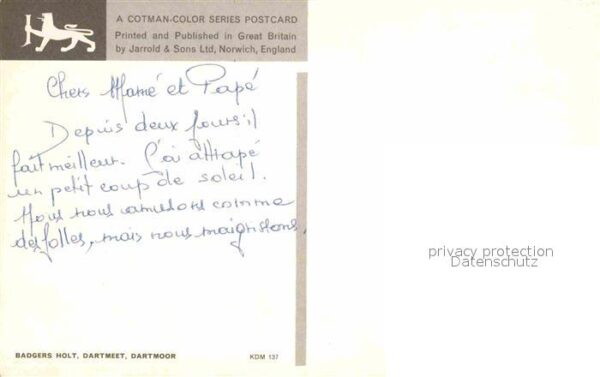 A COTMAN-COLOR SERIES POSTCARD
Printed and Published in Great Britain
by Jarrold & Sons Ltd, Norwich, England
Chers Mamé et Papé
Depuis deux jours il
fait meilleur. J'ai attrapé
un petit coup de soleil.
Nous nous amusons comme
des folles, mais nous maigrissons.
privacy protection
Datenschutz
BADGERS HOLT, DARTMEET, DARTMOOR
KDM 137